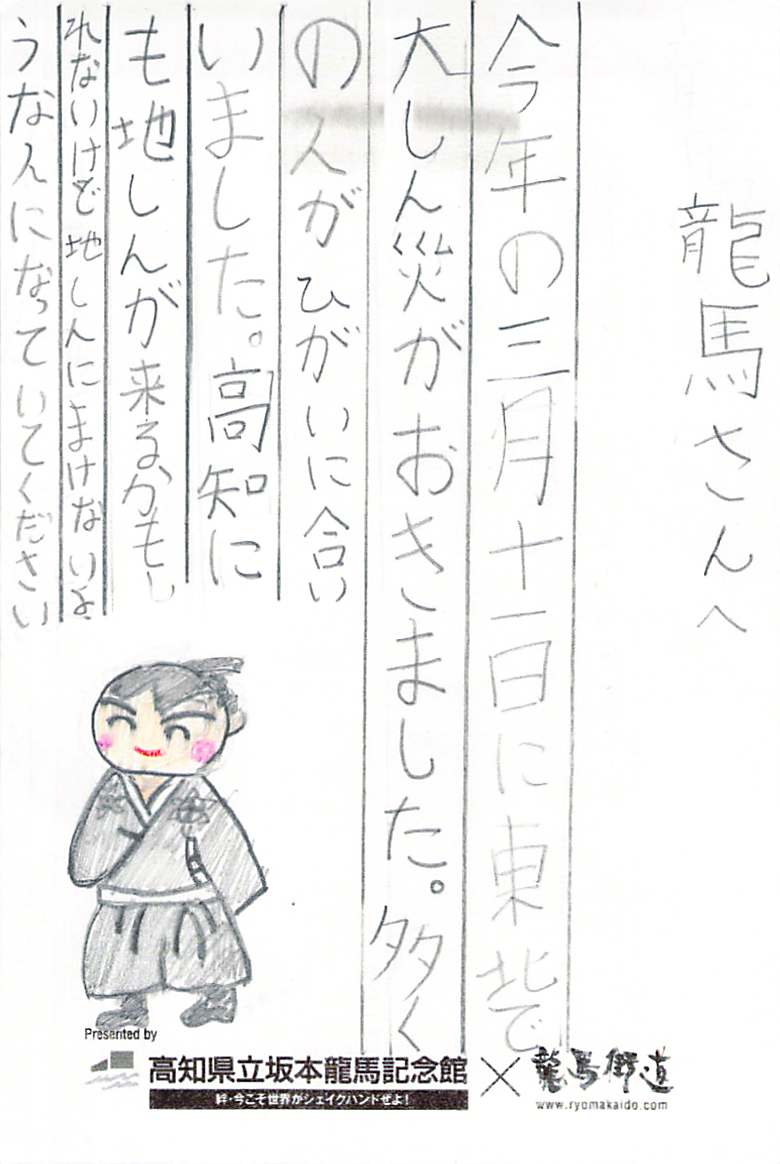 龍馬さんへ
今年の三月十一日に東北で
大しん災がおきました。多く
の人がひがいに合い
いました。高知に
も地しんが来るかもし
れないけど地しんにまけないよ
うな人になっていてください
Presented by
高知県立坂本龍馬記念館×龍馬街道
絆・今こそ世界がシェイクハンドぜよ!
www.ryomakaido.com